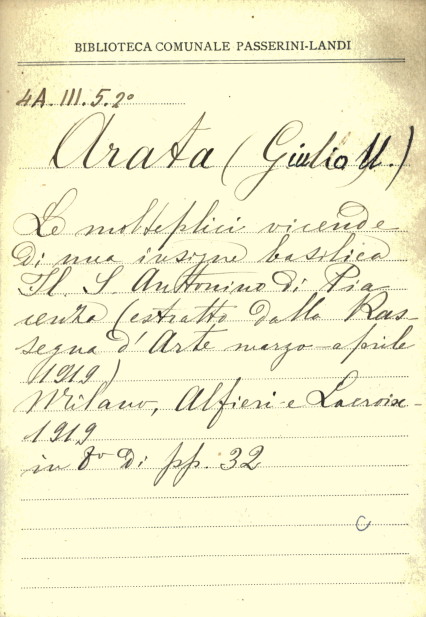 BIBLIOTECA COMUNALE PASSERINI-LANDI
4A. III. 5. 2º
Arata (Giulio U.)
Le molteplici vicende
di una insigne basilica
Il S. Antonino di Pia
cenza (estratto dalla Ras-
segna d'Arte marzo-aprile
1919)
Milano, Alfieri e Lacroix-
1919
in 8º di pp. 32
C